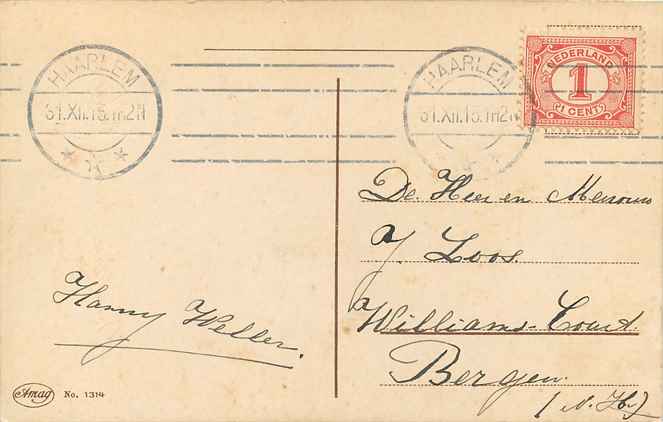 HAARLEM
31.XII.15.1-2N
HAARLEM
31.XII.15.1-2N
NEDERLAND
1
1 CENT
De Heer en Mevrouw
J. Loos.
Williams-Court.
Bergen.
(N.H.)
Hanny Weller.
Amag No. 1314